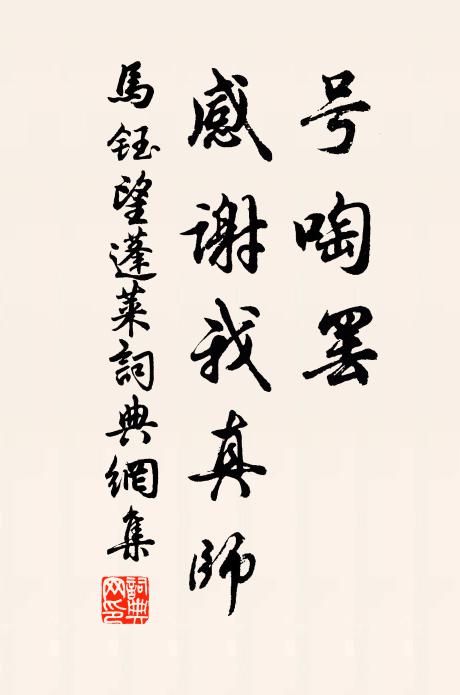 号啕罢
感谢我真师
馬鈺望蓬萊詞典網集
詞典网印